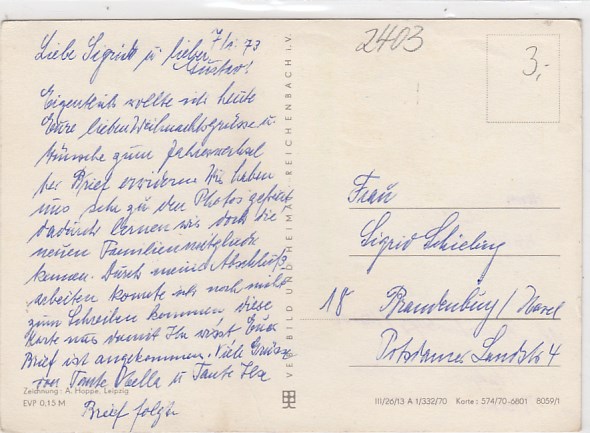 7/1. 73
Liebe Sigrid u lieber
Gustav!
Eigentlich wollte ich heute
Eure lieben Weihnachtsgrüsse u.
Wünsche zum Jahreswechsel
per Brief erwidern. Wir haben
uns sehr zu den Photos gefreut
dadurch lernen wir doch die
neuen Familienmitglieder
kennen. Durch meine Abschluß-
arbeiten konnte ich noch nicht
zum Schreiben kommen, diese
Karte nur damit Ihr wisst Euer
Brief ist angekommen. Viele Grüsse
von Tante Ella u Tante Ilse
Brief folgt
Zeichnung: A. Hoppe, Leipzig
EVP 0,15 M
VERLAG BILD UND HEIMAT REICHENBACH I. V.
2403
3,-
Frau
Sigrid Schieling
18 Brandenburg / Havel
Potsdamer Landstr 4
III/26/13 A 1/332/70 Karte: 574/70-6801 8059/1